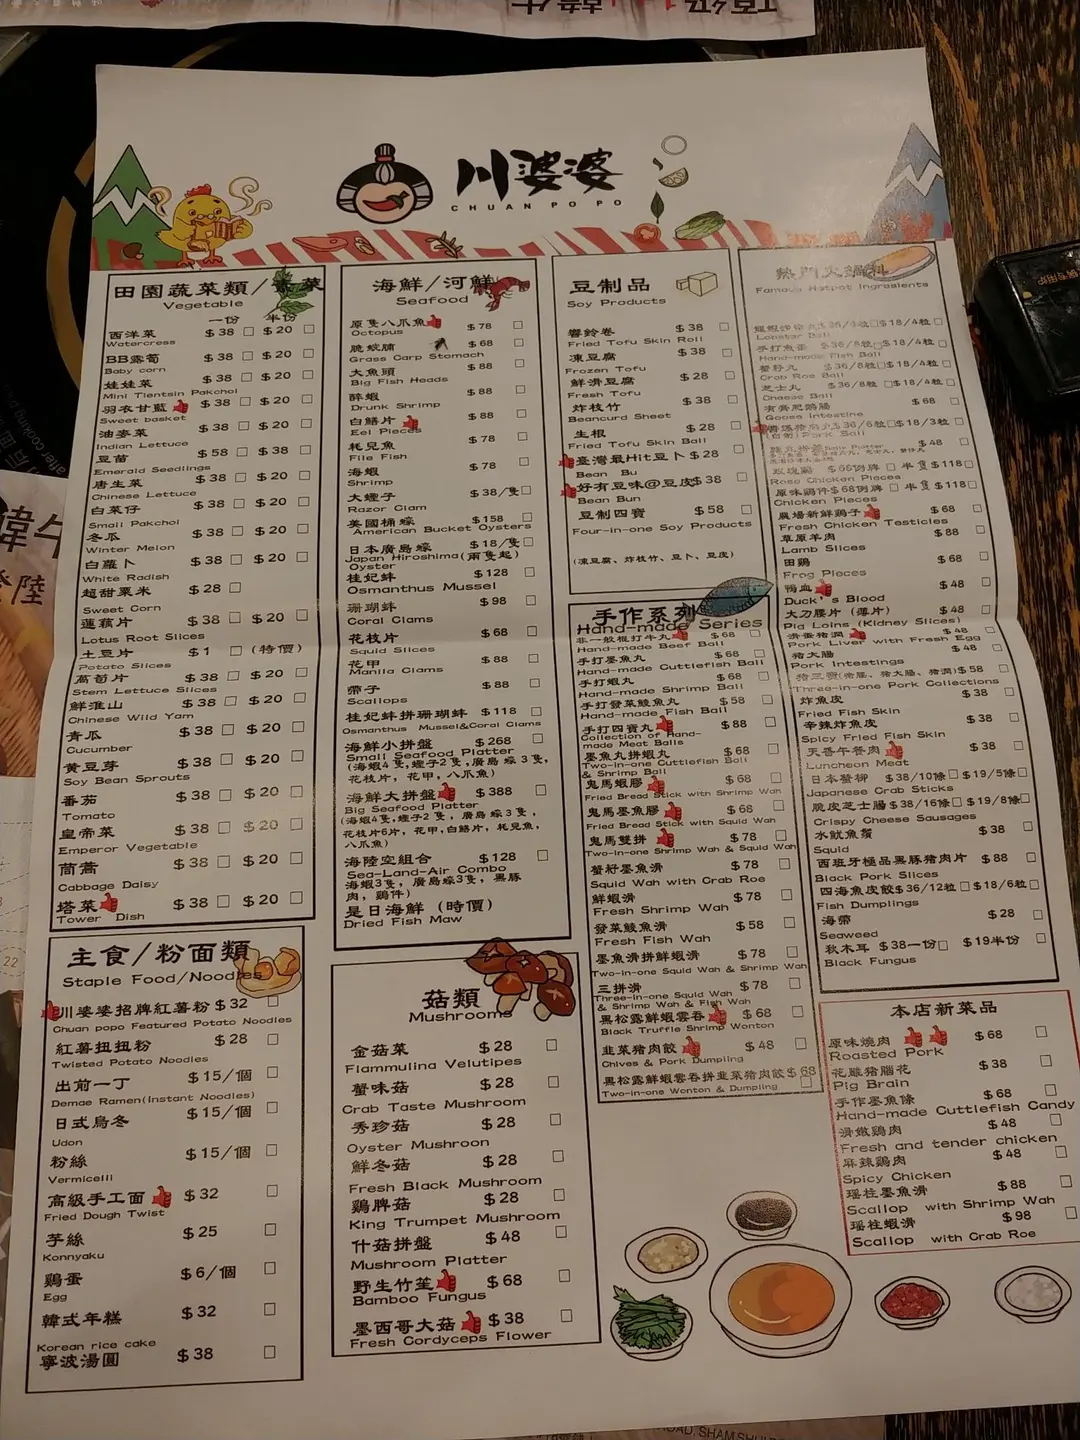 川婆婆
CHUAN PO PO
田園蔬菜類/素菜
Vegetable
一份 半份
西洋菜 $38 □ $20 □
Watercress
BB露荀 $38 □ $20 □
Baby corn
娃娃菜 $38 □ $20 □
Mini Tientsin Pakchoi
羽衣甘藍 $38 □ $20 □
Sweet basket
油麥菜 $38 □ $20 □
Indian Lettuce
豆苗 $58 □ $38 □
Emerald Seedlings
唐生菜 $38 □ $20 □
Chinese Lettuce
白菜仔 $38 □ $20 □
Small Pakchoi
冬瓜 $38 □ $20 □
Winter Melon
白蘿卜 $38 □ $20 □
White Radish
超甜粟米 $28 □
Sweet Corn
蓮藕片 $38 □ $20 □
Lotus Root Slices
土豆片 $1 □ (特價)
Potato Slices
萵荀片 $38 □ $20 □
Stem Lettuce Slices
鮮淮山 $38 □ $20 □
Chinese Wild Yam
青瓜 $38 □ $20 □
Cucumber
黄豆芽 $38 □ $20 □
Soy Bean Sprouts
番茄 $38 □ $20 □
Tomato
皇帝菜 $38 □ $20 □
Emperor Vegetable
茼蒿 $38 □ $20 □
Cabbage Daisy
塔菜 $38 □ $20 □
Tower Dish
主食/粉面類
Staple Food/Noodles
川婆婆招牌紅薯粉 $32 □
Chuan popo Featured Potato Noodles
紅薯扭扭粉 $28 □
Twisted Potato Noodles
出前一丁 $15/個 □
Demae Ramen(Instant Noodles)
日式烏冬 $15/個 □
Udon
粉絲 $15/個 □
Vermicelli
高級手工面 $32 □
Fried Dough Twist
芋絲 $25 □
Konnyaku
鷄蛋 $6/個 □
Egg
韓式年糕 $32 □
Korean rice cake
寧波湯圓 $38 □
海鮮/河鮮
Seafood
原隻八爪魚 $78 □
Octopus
脆皖腩 $68 □
Grass Carp Stomach
大魚頭 $88 □
Big Fish Heads
醉蝦 $88 □
Drunk Shrimp
白鱔片 $88 □
Eel Pieces
耗兒魚 $78 □
File Fish
海蝦 $78 □
Shrimp
大蟶子 $38/隻 □
Razor Clam
美國桶蠔 $158 □
American Bucket Oysters
日本廣島蠔 $18/隻 □
Japan Hiroshima(兩隻起)
Oyster
桂妃蚌 $128 □
Osmanthus Mussel
珊瑚蚌 $98 □
Coral Clams
花枝片 $68 □
Squid Slices
花甲 $88 □
Manila Clams
帶子 $88 □
Scallops
桂妃蚌拼珊瑚蚌 $118 □
Osmanthus Mussel&Coral Clams
海鮮小拼盤 $268 □
Small Seafood Platter
(海蝦4隻,蟶子2隻,廣島蠔3隻,
花枝片, 花甲, 八爪魚)
海鮮大拼盤 $388 □
Big Seafood Platter
(海蝦4隻,蟶子2隻, 廣島蠔3隻,
花枝片6片, 花甲,白鱔片, 耗兒魚,
八爪魚)
海陸空組合 $128 □
Sea-Land-Air Combo
海蝦3隻, 廣島蠔3隻, 黑豚
肉, 鷄件)
是日海鮮 (時價)
Dried Fish Maw
菇類
Mushrooms
金菇菜 $28 □
Flammulina Velutipes
蟹味菇 $28 □
Crab Taste Mushroom
秀珍菇 $28 □
Oyster Mushroon
鮮冬菇 $28 □
Fresh Black Mushroom
鷄脾菇 $28 □
King Trumpet Mushroom
什菇拼盤 $48 □
Mushroom Platter
野生竹笙 $68 □
Bamboo Fungus
墨西哥大菇 $38 □
Fresh Cordyceps Flower
豆制品
Soy Products
響鈴卷 $38 □
Fried Tofu Skin Roll
凍豆腐 $38 □
Frozen Tofu
鮮滑豆腐 $28 □
Fresh Tofu
炸枝竹 $38 □
Beancurd Sheet
生根 $28 □
Fried Tofu Skin Ball
臺灣最Hit豆卜 $28 □
Bean Bu
好有豆味@豆皮 $38 □
Bean Bun
豆制四寶 $58 □
Four-in-one Soy Products
(凍豆腐、炸枝竹、豆卜、豆皮)
手作系列
Hand-made Series
非一般棍打牛丸 $68 □
Hand-made Beef Ball
手打墨魚丸 $68 □
Hand-made Cuttlefish Ball
手打蝦丸 $68 □
Hand-made Shrimp Ball
手打發菜鯪魚丸 $58 □
Hand-made Fish Ball
手打四寶丸 $88 □
Collection of Hand-
made Meat Balls
墨魚丸拼蝦丸 $68 □
Two-in-one Cuttlefish Ball
& Shrimp Ball
鬼馬蝦膠 $68 □
Fried Bread Stick with Shrimp Wah
鬼馬墨魚膠 $68 □
Fried Bread Stick with Squid Wah
鬼馬雙拼 $78 □
Two-in-one Shrimp Wah & Squid Wah
蟹籽墨魚滑 $78 □
Squid Wah with Crab Roe
鮮蝦滑 $78 □
Fresh Shrimp Wah
發菜鯪魚滑 $58 □
Fresh Fish Wah
墨魚滑拼鮮蝦滑 $78 □
Two-in-one Squid Wah & Shrimp Wah
三拼滑 $78 □
Three-in-one Squid Wah
& Shrimp Wah & Fish Wah
黑松露鮮蝦雲吞 $68 □
Black Truffle Shrimp Wonton
韭菜猪肉餃 $48 □
Chives & Pork Dumpling
黑松露鮮蝦雲吞拼韭菜猪肉餃 $68
Two-in-one Wonton & Dumpling □
熱門火鍋料
Famous Hotpot Ingredients
$36/8粒 □ $18/4粒 □
Lobster Ball
手打魚蛋 $36/8粒 □ $18/4粒 □
Hand-made Fish Ball
蟹籽丸 $36/8粒 □ $18/4粒 □
Crab Roe Ball
芝士丸 $36/8粒 □ $18/4粒 □
Cheese Ball
有竇肥鵝腸 $68 □
Goose Intestine
$36/6粒 □ $18/3粒 □
Pork Ball
$48 □
玫瑰鷄 $66例牌 □ 半隻$118 □
Rose Chicken Pieces
原味鷄件 $68例牌 □ 半隻$118 □
Chicken Pieces
農場新鮮鷄子 $68 □
Fresh Chicken Testicles
草原羊肉 $88 □
Lamb Slices
田鷄 $68 □
Frog Pieces
鴨血 $48 □
Duck's Blood
大刀腰片 (薄片) $48 □
Pig Loins (Kidney Slices)
滑蛋猪潤 $48 □
Pork Liver with Fresh Egg
猪大腸 $48 □
Pork Intestings
猪三寶(猪腰、猪大腸、猪潤) $58 □
Three-in-one Pork Collections
炸魚皮 $38 □
Fried Fish Skin
辛辣炸魚皮 $38 □
Spicy Fried Fish Skin
天善午餐肉 $38 □
Luncheon Meat
日本蟹柳 $38/10條 □ $19/5條 □
Japanese Crab Sticks
脆皮芝士腸 $38/16條 □ $19/8條 □
Crispy Cheese Sausages
水魷魚鬚 $38 □
Squid
西班牙極品黑豚猪肉片 $88 □
Black Pork Slices
四海魚皮餃 $36/12粒 □ $18/6粒 □
Fish Dumplings
海帶 $28 □
Seaweed
秋木耳 $38一份 □ $19半份 □
Black Fungus
本店新菜品
原味燒肉 $68 □
Roasted Pork
花雕猪腦花 $38 □
Pig Brain
手作墨魚條 $68 □
Hand-made Cuttlefish Candy
滑嫩鷄肉 $48 □
Fresh and tender chicken
麻辣鷄肉 $48 □
Spicy Chicken
瑶柱墨魚滑 $88 □
Scallop with Shrimp Wah
瑶柱蝦滑 $98 □
Scallop with Crab Roe
after cooking
22